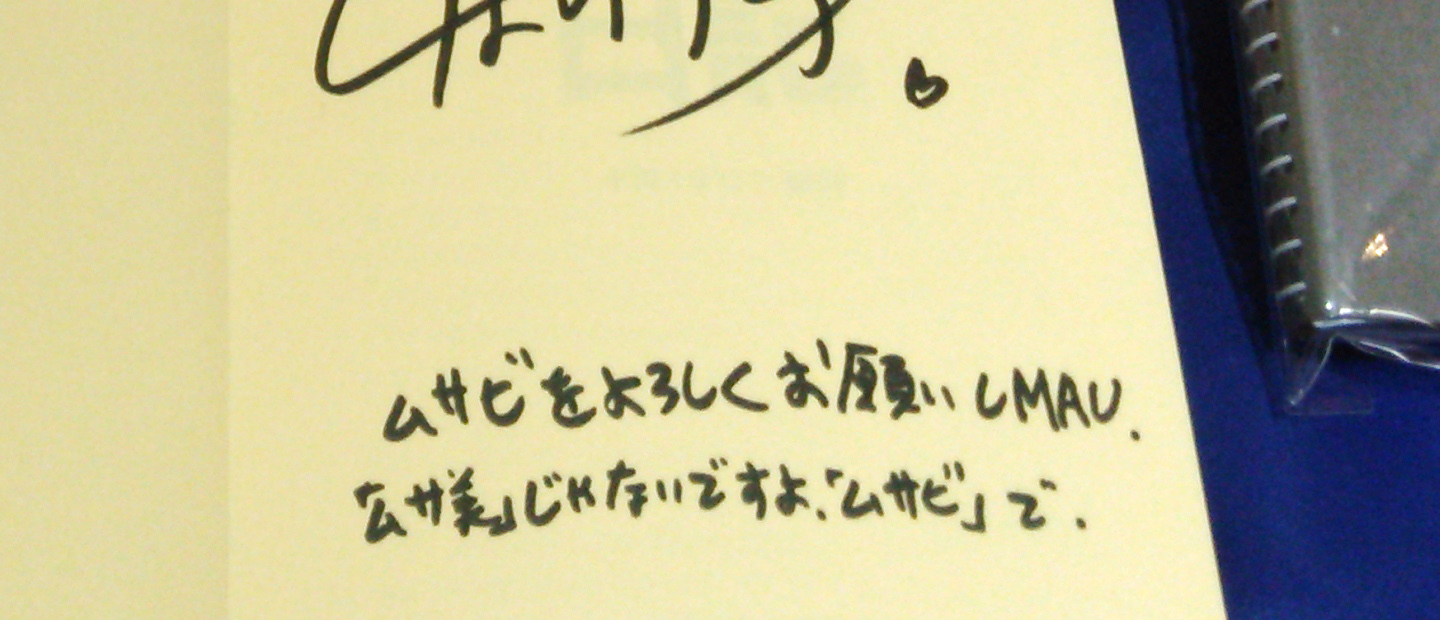 ムサビをよろしくお願いしMAU.
「ムサ美」じゃないですよ.「ムサビ」で.